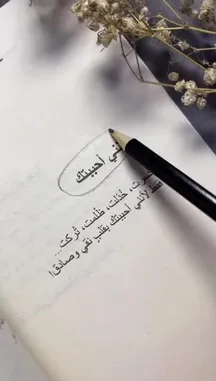 ني أحببتك
خُذلت، ظُلمت، تُركت...
فقط لأنني أحببتك بقلبٍ نقي وصادق!